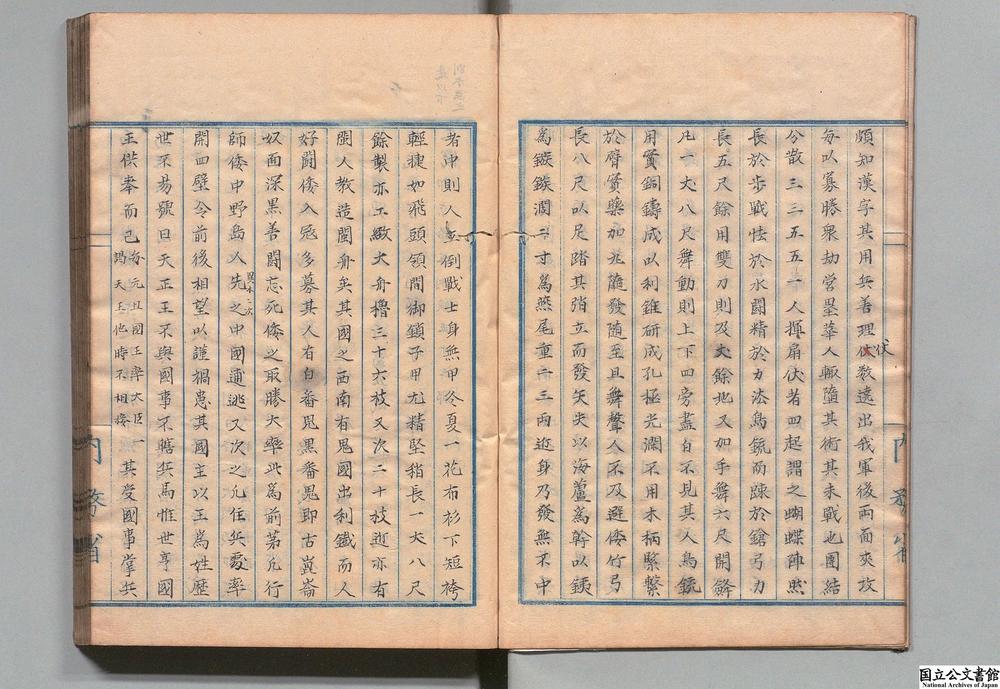 頗知漢字其用兵善理伏数遶出我軍後両面夾攻
伏
每以寡勝衆劫營壘華人輙隨其術其未戰也團結
分散三三五五一人揮扇伏者四起謂之蝴蝶陣然
長於步戰怯於水鬪精於刀法鳥銃而踈於鎗弓刀
長五尺餘用雙刀則及丈餘地又加手舞六尺開鋒
凡一丈八尺舞動則上下四旁盡白不見其人鳥銃
用實銅鑄成以利錐研成孔極光濶不用木柄緊繫
於臂實藥加兆隨發隨至且無聲人不及避倭竹弓
長八尺以足踏其弰立而發矢矢以海蘆為幹以鐵
為鏃鏃濶二寸為燕尾重二三兩近身乃發無不中
者中則人立倒戰士身無甲冬夏一花布衫下短袴
輕捷如飛頭領間御鎖子甲尤精堅矟長一丈八尺
餘製亦工緻大舟櫓三十六枝又次二十枝逝亦有
閩人教造閩舟矣其國之西南有鬼國出利鐵而人
好鬪倭入冦多募其人有白番鬼黒番鬼即古崑崙
奴面深黒善鬪忘死倭之取勝大率此為前茅凢行
師倭中野島人先之中國逋逃又次之凢住兵處率
開四壁令前後相望以謹禍患其國主以王為姓歷
世不易號曰天正王不與國事不贍兵馬惟世享國
王供奉而已每元丑國王率大臣一謁天王他時不相接其受國事掌兵
內務省